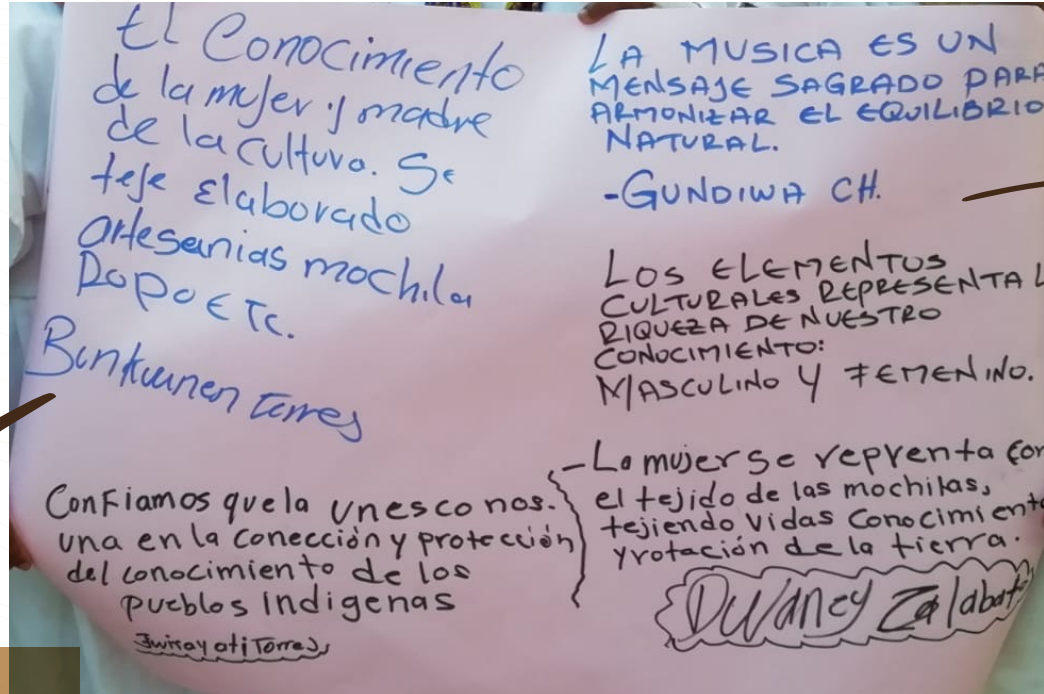 El Conocimiento
de la mujer y madre
de la cultura. Se
teje Elaborado
artesanias mochila
Ropo ETC.
Torres
Confiamos que la Unesco nos.
una en la conección y protección
del conocimiento de los
pueblos indigenas
Torres
LA MUSICA ES UN
MENSAJE SAGRADO PARA
ARMONIZAR EL EQUILIBRIO
NATURAL.
-GUNDIWA CH.
LOS ELEMENTOS
CULTURALES REPRESENTA L
RIQUEZA DE NUESTRO
CONOCIMIENTO:
MASCULINO Y FEMENINO.
-La mujer se reprenta con
el tejido de las mochilas,
tejiendo vidas conocimiento
y rotación de la tierra.